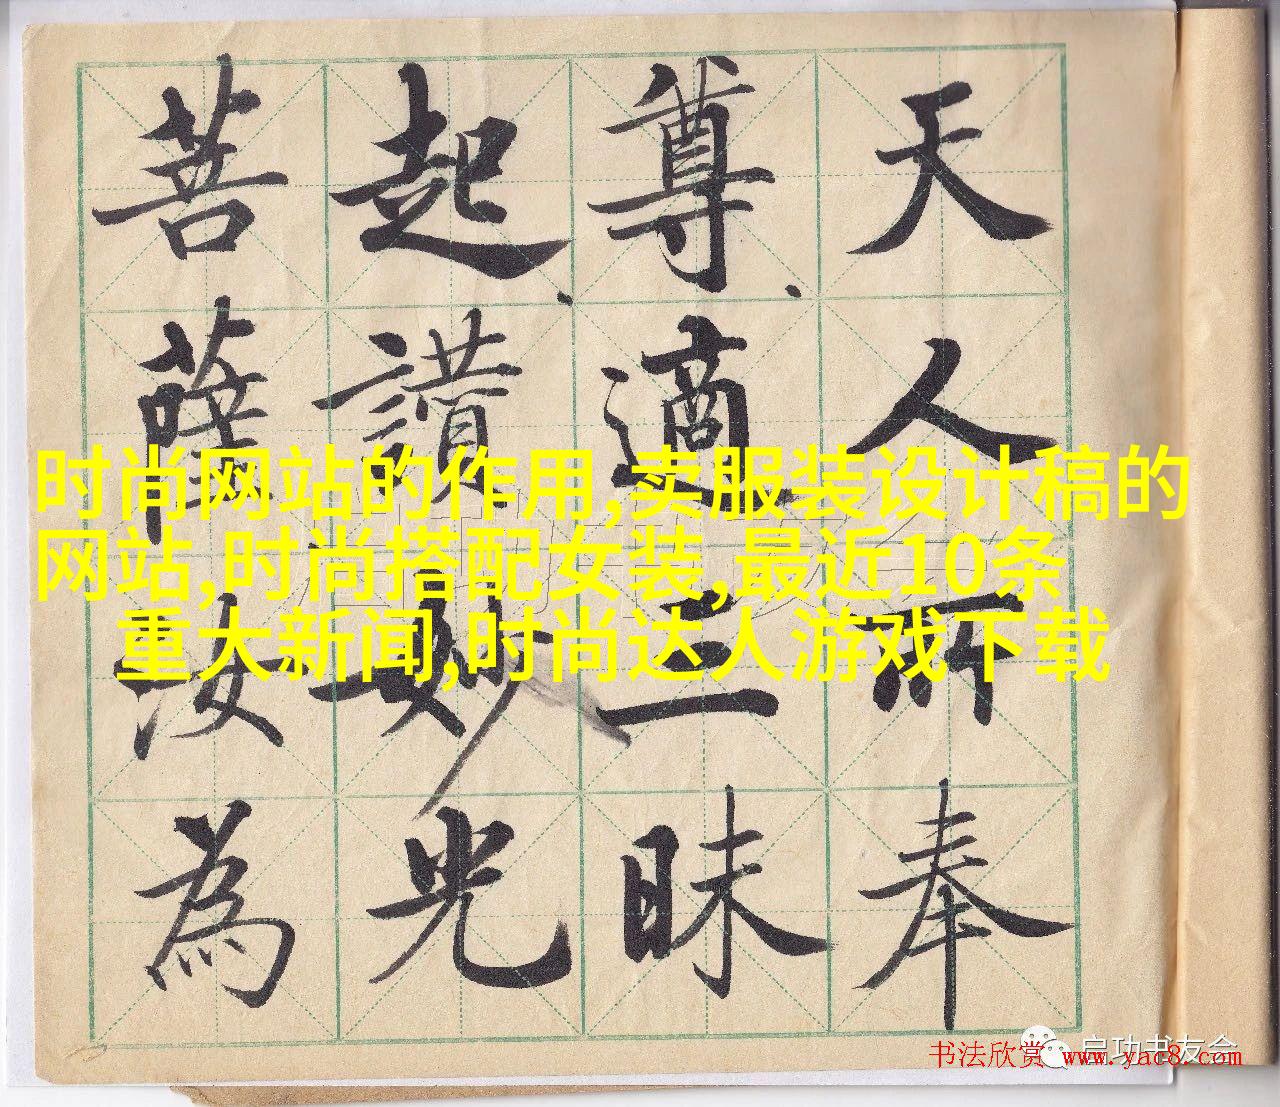 天人所奉
尊適三昧
起讃妙光
菩薩汝為
时尚网站的作用,卖服装设计稿的
网站,时尚搭配女装,最近10条
重大新闻,时尚达人游戏下载
启功书友会
书法欣赏 www.yac8.com